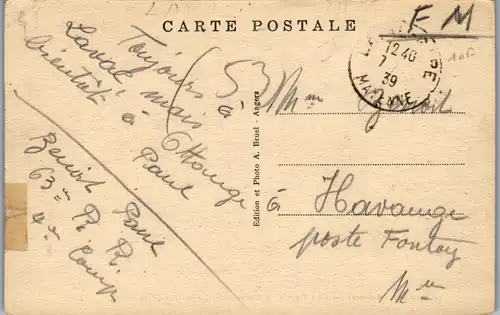 CARTE POSTALE
F M
Toujours à
Laval mais
bientôt à
Ottange
Paul
(53
Benoit Paul
63 R. R
4e Comp
Edition et Photo A. Bruel - Angers
12 40
7
39
MAYENNE
Mme Benoit
à Havange
poste Fontoy
Mlle